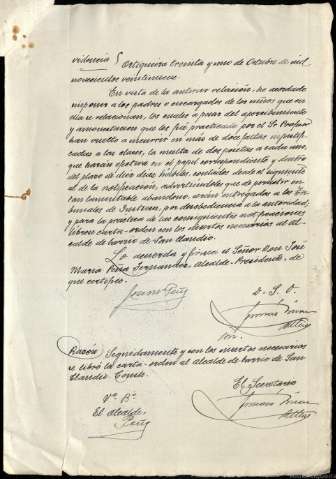 videncia / Ortigueira treinta y uno de Octubre de mil
novecientos veintinueve.
En vista de la anterior relación, he acordado
imponer a los padres o encargados de los niños que en
ella se relacionan, los cuales a pesar del apercibimiento
y amonestación que les fué practicado por el Sr Profesor
han vuelto a incurrir en más de dos faltas injustifi-
cadas a las clases, la multa de dos pesetas a cada uno,
que harán efectiva en el papel correspondiente y dentro
del plazo de diez dias hábiles contados desde el siguiente
al de la notificación, advirtiéndoles que de persistir en
tan lamentable abandono, serán entregados a los Tri-
bunales de Justicia, por desobediencia a la autoridad,
y para la práctica de las consiguientes notificaciones
líbrese carta-orden con los insertos necesarios al al-
calde de barrio de San Claudio.
Lo acuerda y firma el Señor Don José
María Peña, Alcalde-Presidente, de
que certifico.
D. S. O.
Razón/ Seguidamente y con los insertos necesarios
se libró la carta-orden al alcalde de barrio de San
Claudio. Conste.
Vº Bº
El Alcalde
El Secretario